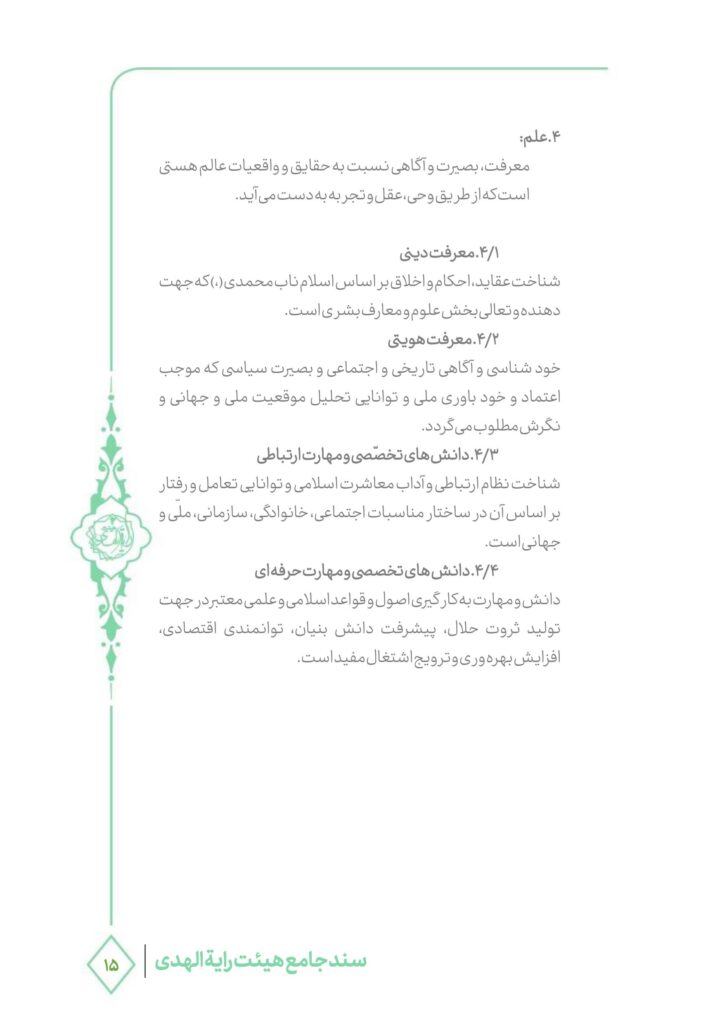 ۴. علم:
معرفت، بصیرت و آگاهی نسبت به حقایق و واقعیات عالم هستی
است که از طریق وحی، عقل و تجربه به دست می‌آید.
۴/۱. معرفت دینی
شناخت عقاید، احکام و اخلاق بر اساس اسلام ناب محمدی (،) که جهت
دهنده و تعالی بخش علوم و معارف بشری است.
۴/۲. معرفت هویتی
خود شناسی و آگاهی تاریخی و اجتماعی و بصیرت سیاسی که موجب
اعتماد و خود باوری ملی و توانایی تحلیل موقعیت ملی و جهانی و
نگرش مطلوب می‌گردد.
۴/۳. دانش‌های تخصّصی و مهارت ارتباطی
شناخت نظام ارتباطی و آداب معاشرت اسلامی و توانایی تعامل و رفتار
بر اساس آن در ساختار مناسبات اجتماعی، خانوادگی، سازمانی، ملّی و
جهانی است.
۴/۴. دانش‌های تخصصی و مهارت حرفه‌ای
دانش و مهارت به کارگیری اصول و قواعد اسلامی و علمی معتبر در جهت
تولید ثروت حلال، پیشرفت دانش بنیان، توانمندی اقتصادی،
افزایش بهره‌وری و ترویج اشتغال مفید است.
سند جامع هیئت رایة الهدی
۱۵